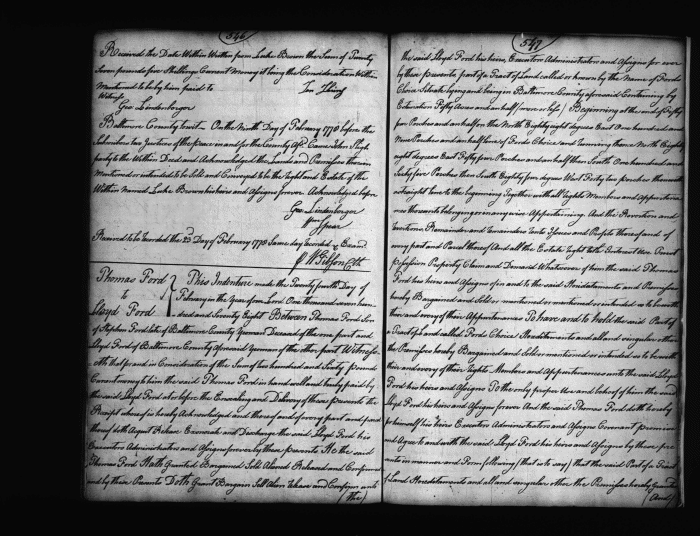 546
Received the Date Within Written from Luke Brown the Sum of Twenty
Seven pounds five Shillings Current Money it being the Consideration Within
Mentioned to be by him paid to
Witness
Geo. Lindenberger
Baltimore County to wit. On the Ninth Day of February 1778 before the
Subscribers two Justices of the peace in and for the County Afd. Came John
party to the Within Deed and Acknowledged the Lands and Premises therein
Mentioned or intended to be Sold and Conveyed to be the right and Estate of the
Within named Luke Brown his heirs and Assigns forever. Acknowledged before
Geo. Lindenberger
Wm Spear
Received to be Recorded the 23d Day of February 1778 Same day Recorded & Examd
Wm Gibson Clk
Thomas Ford
to
Lloyd Ford
This Indenture made the Twenty fourth Day of
February in the Year of our Lord One thousand seven hun=
dred and Seventy Eight Between Thomas Ford Son
of Stephen Ford late of Baltimore County Yeoman Deceased of the one part and
Lloyd Ford of Baltimore County aforesaid Yeoman of the other part Witness=
eth that for and in Consideration of the Sum of two hundred and Sixty pounds
Current money to him the said Thomas Ford in hand well and truly paid by
the said Lloyd Ford at or before the Ensealing and Delivery of these presents the
Receipt whereof is hereby Acknowledged and thereof and of every part and parcel
thereof doth Acquit Release Exonerate and Discharge the said Lloyd Ford his
Executors Administrators and Assigns forever by these presents He the said
Thomas Ford Hath Granted Bargained Sold Aliened Released and Confirmed
and by these Presents Doth Grant Bargain Sell Alien Release and Confirm unto
(the)
547
the said Lloyd Ford his heirs, Executors Administrators and Assigns for ever
by these presents part of a Tract of Land called or known by the Name of Fords
Choice Situate lying and being in Baltimore County aforesaid Containing by
Estimation Fifty Acres and an half (more or less) Beginning at the end of Fifty
four Perches and an half on the North Eighty eight degrees East One hundred and
Nine Perches and an half line of Fords Choice and running thence North Eighty
eight degrees East Fifty five Perches and an half then South One hundred and
Sixty five Perches then South Eighty degrees West Forty ten perches then with
a straight line to the beginning Together with all Rights Members and Appurtenan
ces thereunto belonging or in any wise Appertaining And the Reversion and
Reversions Remainder and Remainders Rents Issues and Profits thereof and of
every part and Parcel thereof And all the Estate Right Title Interest Use Trust
possession Property Claim and Demand Whatsoever of him the said Thomas
Ford his heirs and Assigns of in and to the said Hereditaments and Premises
hereby Bargained and Sold or mentioned or intended so to be with
their and every of their Appurtenances To have and to hold the said Part of
a Tract of Land called Fords Choice Hereditaments and all and singular other
the Premises hereby Bargained and Sold or mentioned or intended so to be with
their and every of their Rights Members and Appurtenances unto the said Lloyd
Ford his heirs and Assigns To the only proper use and behoof of him the said
Lloyd Ford his heirs and Assigns forever And the said Thomas Ford doth hereby
for himself his heirs Executors Administrators and Assigns Covenant promise
and Agree to and with the said Lloyd Ford his heirs and Assigns by these pre
sents in manner and Form following (that is to say) that the said Part of a Tract
of Land Hereditaments and all and singular other the Premises hereby
(And)